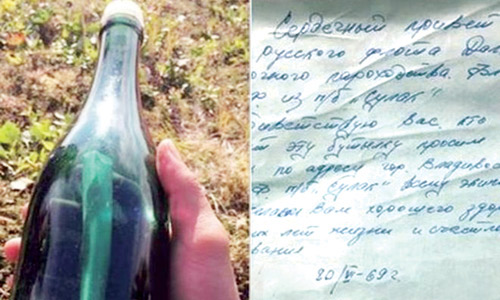 Сердечный привет
русского флота Даль
очного пароходства.
из п/б "Сулак"
ветствую вас, кто
т эту бутылку просим
по адресу гор. Владивос
п/б "Сулак" всему экип
Вам хорошего здор
их лет жизни и счастли
вания
20/VI-69г.